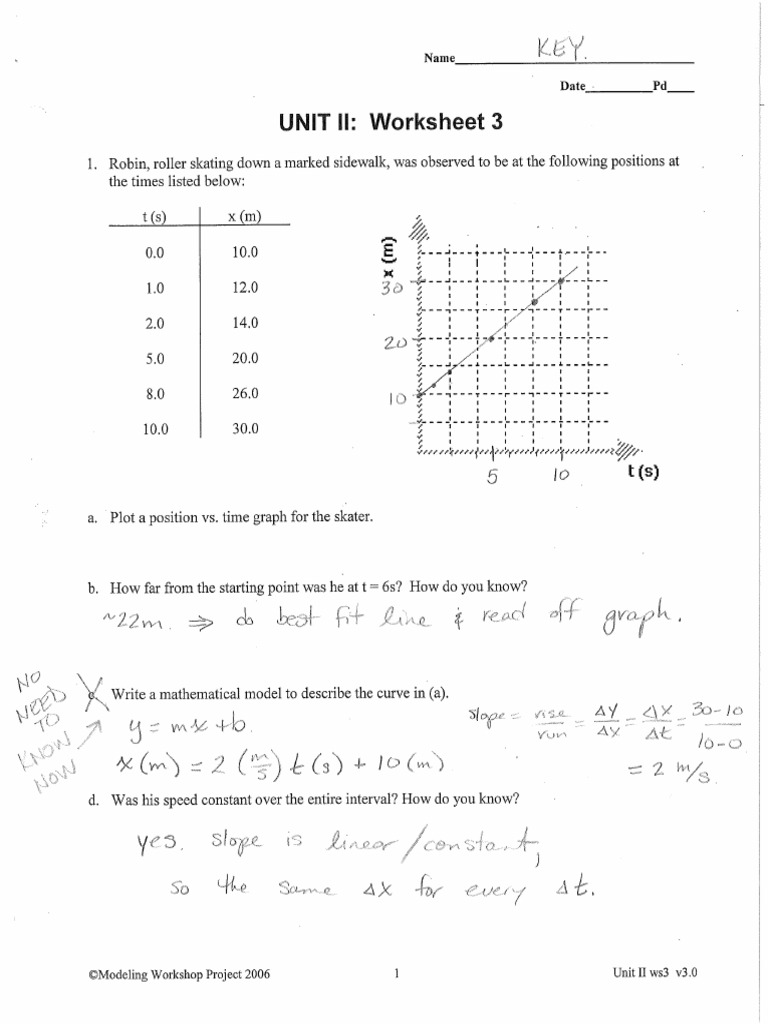 Name KEY.
Date Pd
UNIT II: Worksheet 3
1. Robin, roller skating down a marked sidewalk, was observed to be at the following positions at
the times listed below:
t (s) x (m)
0.0 10.0
1.0 12.0
2.0 14.0
5.0 20.0
8.0 26.0
10.0 30.0
x (m)
30
20
10
5 10 t (s)
a. Plot a position vs. time graph for the skater.
b. How far from the starting point was he at t = 6s? How do you know?
~22m. ⇒ do best fit line & read off graph.
NO NEED TO KNOW NOW
Write a mathematical model to describe the curve in (a).
y = mx + b
slope = rise/run = Δy/Δx = Δx/Δt = 30-10/10-0
x(m) = 2 (m/s) t(s) + 10(m)
= 2 m/s.
d. Was his speed constant over the entire interval? How do you know?
yes. slope is linear/constant,
so the same Δx for every Δt.
©Modeling Workshop Project 2006 1 Unit II ws3 v3.0